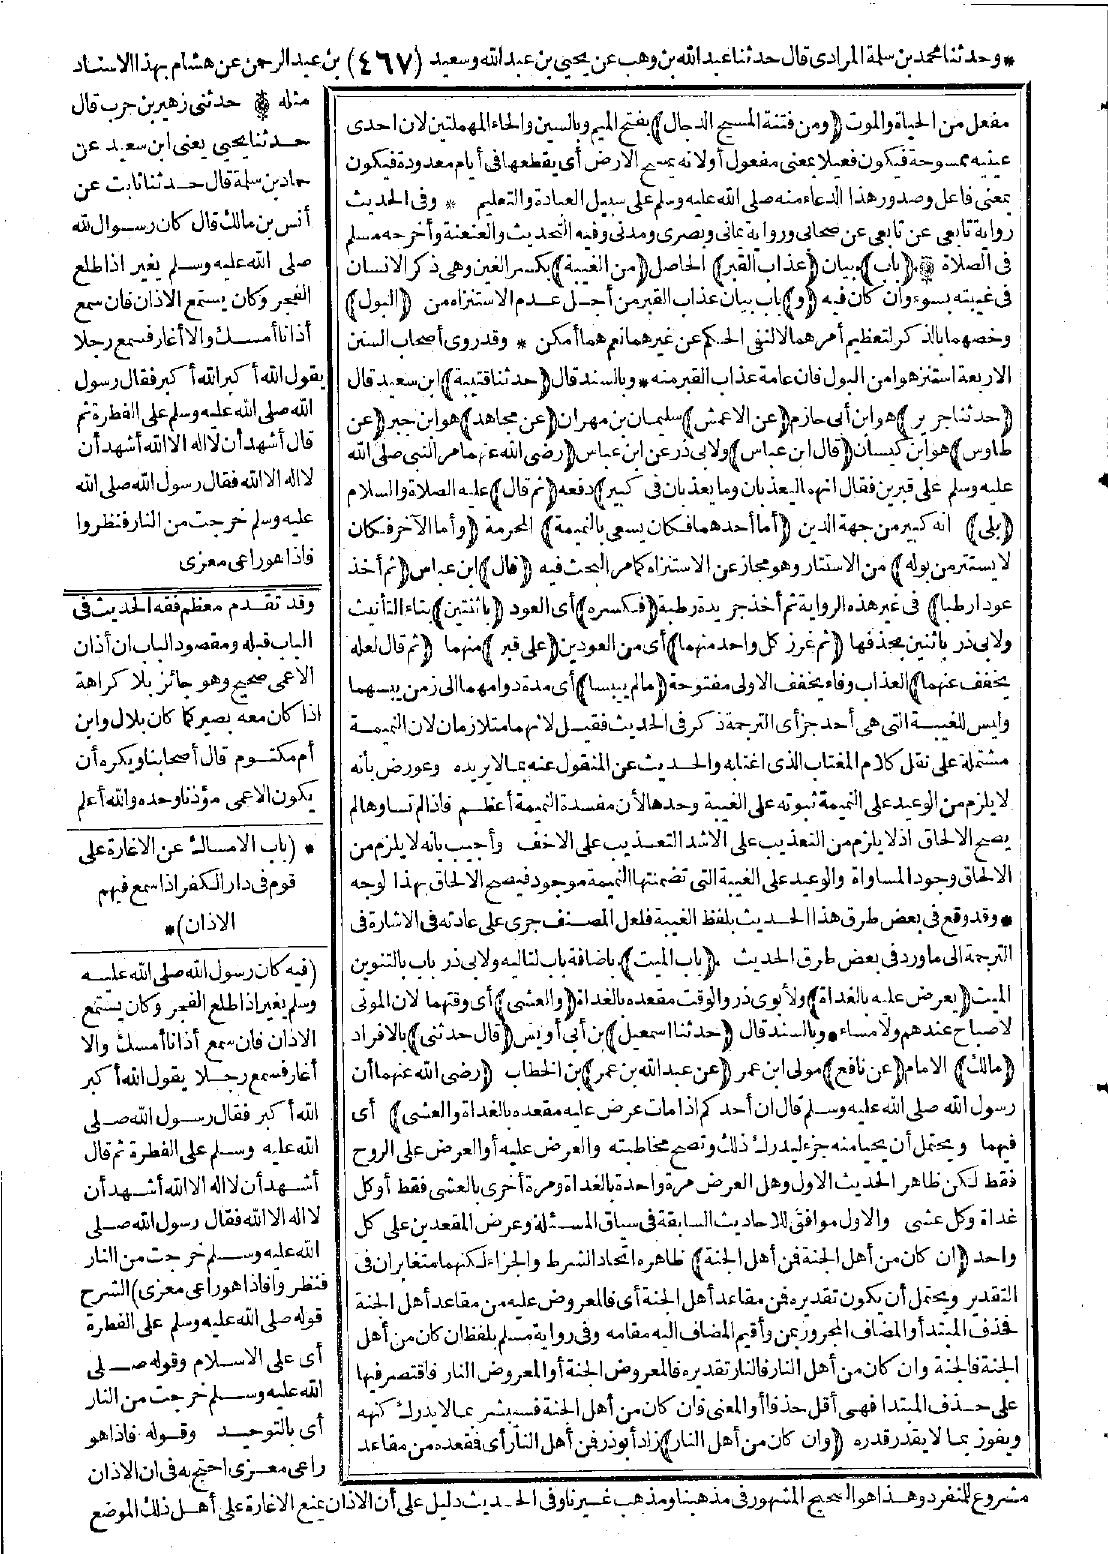 * وحدثنا محمد بن سلمة المرادى قال حدثنا عبد الله بن وهب عن يحيى بن عبد الله وسعيد (٤٦٧) بن عبد الرحمن عن هشام بهذا الاسناد
مثله * حدثنى زهير بن حرب قال
حدثنا يحيى يعنى ابن سعيد عن
حماد بن سلمة قال حدثنا ثابت عن
أنس بن مالك قال كان رسول الله
صلى الله عليه وسلم يغير اذا طلع
الفجر وكان يستمع الاذان فان سمع
أذانا أمسك والا أغار فسمع رجلا
يقول الله أكبر الله أكبر فقال رسول
الله صلى الله عليه وسلم على الفطرة ثم
قال أشهد أن لا اله الا الله أشهد أن
لا اله الا الله فقال رسول الله صلى الله
عليه وسلم خرجت من النار فنظروا
فاذا هو راعى معزى
وقد تقدم معظم فقه الحديث فى
الباب قبله ومقصود الباب ان أذان
الاعمى صحيح وهو جائز بلا كراهة
اذا كان معه بصير كما كان بلال وابن
أم مكتوم قال أصحابنا ويكره أن
يكون الاعمى مؤذنا وحده والله أعلم
* (باب الامساك عن الاغارة على
قوم فى دار الكفر اذا سمع فيهم
الاذان) *
(فيه كان رسول الله صلى الله عليه
وسلم يغير اذا طلع الفجر وكان يستمع
الاذان فان سمع أذانا أمسك والا
أغار فسمع رجلا يقول الله أكبر
الله أكبر فقال رسول الله صلى
الله عليه وسلم على الفطرة ثم قال
أشهد أن لا اله الا الله أشهد أن
لا اله الا الله فقال رسول الله صلى
الله عليه وسلم خرجت من النار
فنظروا فاذا هو راعى معزى) الشرح
قوله صلى الله عليه وسلم على الفطرة
أى على الاسلام وقوله صلى
الله عليه وسلم خرجت من النار
أى بالتوحيد وقوله فاذا هو
راعى معزى احتج به فى ان الاذان
مشروع للمنفرد وهذا هو الصحيح المشهور فى مذهبنا ومذهب غيرنا وفى الحديث دليل على أن الاذان يمنع الاغارة على أهل ذلك الموضع
مفعل من الحياة والموت (ومن فتنة المسيح الدجال) بفتح الميم وبالسين والحاء المهملتين لان احدى
عينيه ممسوحة فيكون فعيلا بمعنى مفعول أو لانه يمسح الارض أى يقطعها فى أيام معدودة فيكون
بمعنى فاعل وصدور هذا الدعاء منه صلى الله عليه وسلم على سبيل العبادة والتعليم * وفى الحديث
رواية تابعى عن تابعى عن صحابى ورواية يمانى وبصرى ومدنى وفيه التحديث والعنعنة وأخرجه مسلم
فى الصلاة * (باب) بيان (عذاب القبر) الحاصل (من الغيبة) بكسر الغين وهى ذكر الانسان
فى غيبته بسوء وان كان فيه (و) باب بيان عذاب القبر من أجل عدم الاستنزاه من (البول)
وخصهما بالذكر لتعظيم أمرهما لا لنفى الحكم عن غيرهما نعم هما أمكن * وقد روى أصحاب السنن
الاربعة استنزهوا من البول فان عامة عذاب القبر منه * وبالسند قال (حدثنا قتيبة) ابن سعيد قال
(حدثنا جرير) هو ابن أبى حازم (عن الاعمش) سليمان بن مهران (عن مجاهد) هو ابن جبر (عن
طاوس) هو ابن كيسان (قال ابن عباس) ولابى ذر عن ابن عباس (رضى الله عنهما مر النبى صلى الله
عليه وسلم على قبرين فقال انهما ليعذبان وما يعذبان فى كبير) دفعه (ثم قال) عليه الصلاة والسلام
(بلى) انه كبير من جهة الدين (أما أحدهما فكان يسعى بالنميمة) المحرمة (وأما الآخر فكان
لا يستتر من بوله) من الاستتار وهو مجاز عن الاستنزاه كما مر البحث فيه (قال) ابن عباس (ثم أخذ
عودا رطبا) فى غير هذه الرواية ثم أخذ جريدة رطبة (فكسره) أى العود (باثنتين) بتاء التأنيث
ولابى ذر باثنين بحذفها (ثم غرز كل واحد منهما) أى من العودين (على قبر) منهما (ثم قال لعله
يخفف عنهما) العذاب وفاء يخفف الاولى مفتوحة (ما لم ييبسا) أى مدة دوامهما الى زمن يبسهما
وليس للغيبة التى هى أحد جزأى الترجمة ذكر فى الحديث فقيل لانهما متلازمان لان النميمة
مشتملة على نقل كلام المغتاب الذى اغتابه والحديث عن المنقول عنه بما لا يريده وعورض بأنه
لا يلزم من الوعيد على النميمة ثبوته على الغيبة وحدها لأن مفسدة النميمة أعظم فاذا لم تساوها لم
يصح الالحاق اذ لا يلزم من التعذيب على الاشد التعذيب على الاخف وأجيب بأنه لا يلزم من
الالحاق وجود المساواة والوعيد على الغيبة التى تضمنتها النميمة موجود فيصح الالحاق بهذا لوجه
* وقد وقع فى بعض طرق هذا الحديث بلفظ الغيبة فلعل المصنف جرى على عادته فى الاشارة فى
الترجمة الى ما ورد فى بعض طرق الحديث (باب الميت) باضافة باب لتاليه ولابى ذر باب بالتنوين
الميت (يعرض عليه بالغداة) ولأبوى ذر والوقت مقعده بالغداة (والعشى) أى وقتهما لان الموتى
لا صباح عندهم ولا مساء * وبالسند قال (حدثنا اسمعيل) بن أبى أويس (قال حدثنى) بالافراد
(مالك) الامام (عن نافع) مولى ابن عمر (عن عبد الله بن عمر) بن الخطاب (رضى الله عنهما أن
رسول الله صلى الله عليه وسلم قال ان أحدكم اذا مات عرض عليه مقعده بالغداة والعشى) أى
فيهما ويحتمل أن يحيا منه جزء ليدرك ذلك وتصح مخاطبته والعرض عليه أو العرض على الروح
فقط لكن ظاهر الحديث الاول وهل العرض مرة واحدة بالغداة ومرة أخرى بالعشى فقط أو كل
غداة وكل عشى والاول موافق للاحاديث السابقة فى سياق المسئلة وعرض المقعدين على كل
واحد (ان كان من أهل الجنة فمن أهل الجنة) ظاهره اتحاد الشرط والجزاء لكنهما متغايران فى
التقدير ويحتمل أن يكون تقديره فمن مقاعد أهل الجنة أى فالمعروض عليه من مقاعد أهل الجنة
فحذف المبتدأ والمضاف المجرور بمن وأقيم المضاف اليه مقامه وفى رواية مسلم بلفظ ان كان من أهل
الجنة فالجنة وان كان من أهل النار فالنار تقديره فالمعروض الجنة أو المعروض النار فاقتصر فيها
على حذف المبتدا فهى أقل حذفا أو المعنى فان كان من أهل الجنة فسيبشر بما لا يدرك كنهه
ويفوز بما لا يقدر قدره (وان كان من أهل النار) زاد أبو ذر فمن أهل النار أى فمقعده من مقاعد